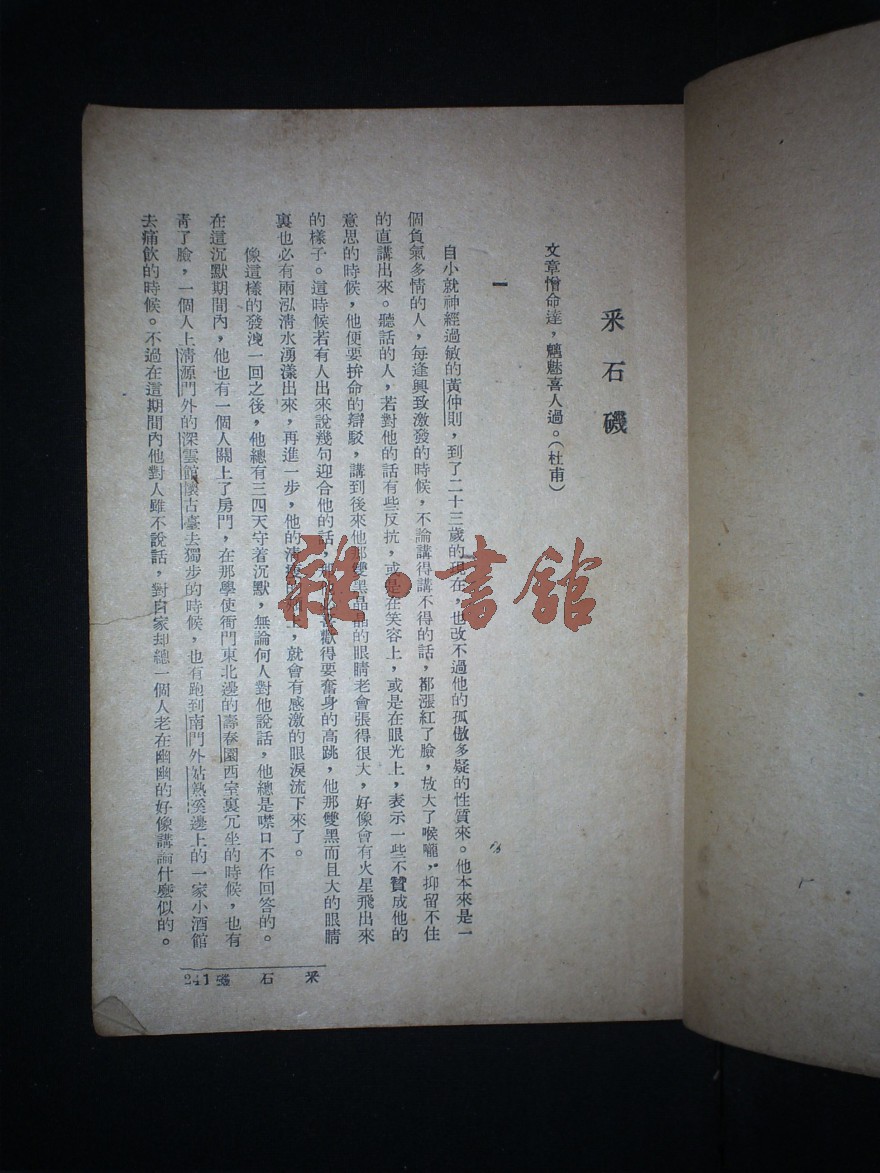 采石磯
文章憎命達，魑魅喜人過。（杜甫）
一
自小就神經過敏的黃仲則，到了二十三歲的現在，也改不過他的孤傲多疑的性質來。他本來是一
個負氣多情的人，每逢興致激發的時候，不論講得講不得的話，都漲紅了臉，放大了喉嚨，抑留不住
的直講出來。聽話的人，若對他的話有些反抗，或是在笑容上，或是在眼光上，表示一些不贊成他的
意思的時候，他便要拚命的辯駁，講到後來他那雙黑晶晶的眼睛老會張得很大，好像會有火星飛出來
的樣子。這時候若有人出來說幾句迎合他的話，歡得要奮身的高跳，他那雙黑而且大的眼睛
裏也必有兩泓清水湧漾出來，再進一步，他的清上，就會有感激的眼淚流下來了。
像這樣的發洩一回之後，他總有三四天守着沉默，無論何人對他說話，他總是噤口不作回答的。
在這沉默期間內，他也有一個人關上了房門，在那學使衙門東北邊的壽春園西室裏冗坐的時候，也有
青了臉，一個人上清源門外的深雲館懷古臺去獨步的時候，也有跑到南門外姑熟溪邊上的一家小酒館
去痛飲的時候。不過在這期間內他對人雖不說話，對自家却總一個人老在幽幽的好像講論什麼似的。
采石磯 241
雜·書館